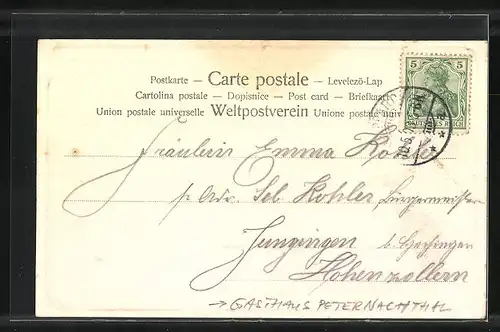 Postkarte – Carte postale – Levelezö-Lap
Cartolina postale – Dopisnice – Post card – Briefkaart
Union postale universelle Weltpostverein Unione postale univ
5 5
Fräulein Emma Kohler
p. Adr. Seb. Kohler, Bürgermeister
Jungingen b. Hechingen
Hohenzollern
→ GASTHAUS PETER NACHTHAL